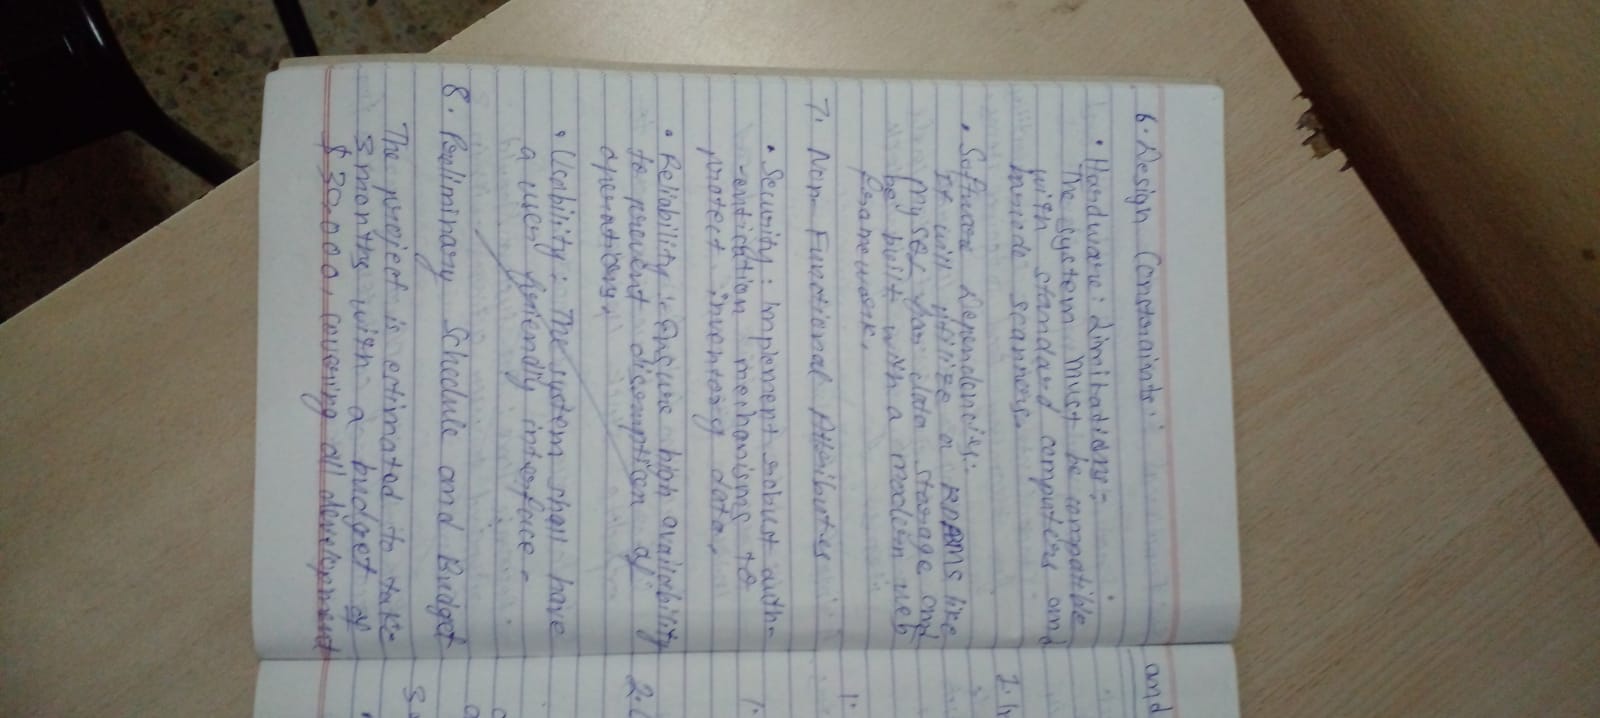 6. Design Constraints:
• Hardware: Limitations:-
The system must be compatible
with standard computers and
scanners.
• Software Dependencies:-
It will utilize a RDBMS like
MySQL for data storage and
be built with a modern web
framework.
7. Non-Functional Attributes
• Security: Implement robust auth-
-entication mechanisms to
protect inventory data.
• Reliability: Ensure high availability
to prevent disruption of
operations.
• Usability: The system shall have
a user friendly interface.
8. Preliminary Schedule and Budget
The project is estimated to take
3 months with a budget of
$30,000, covering all development
and
1.
1.
2.
3